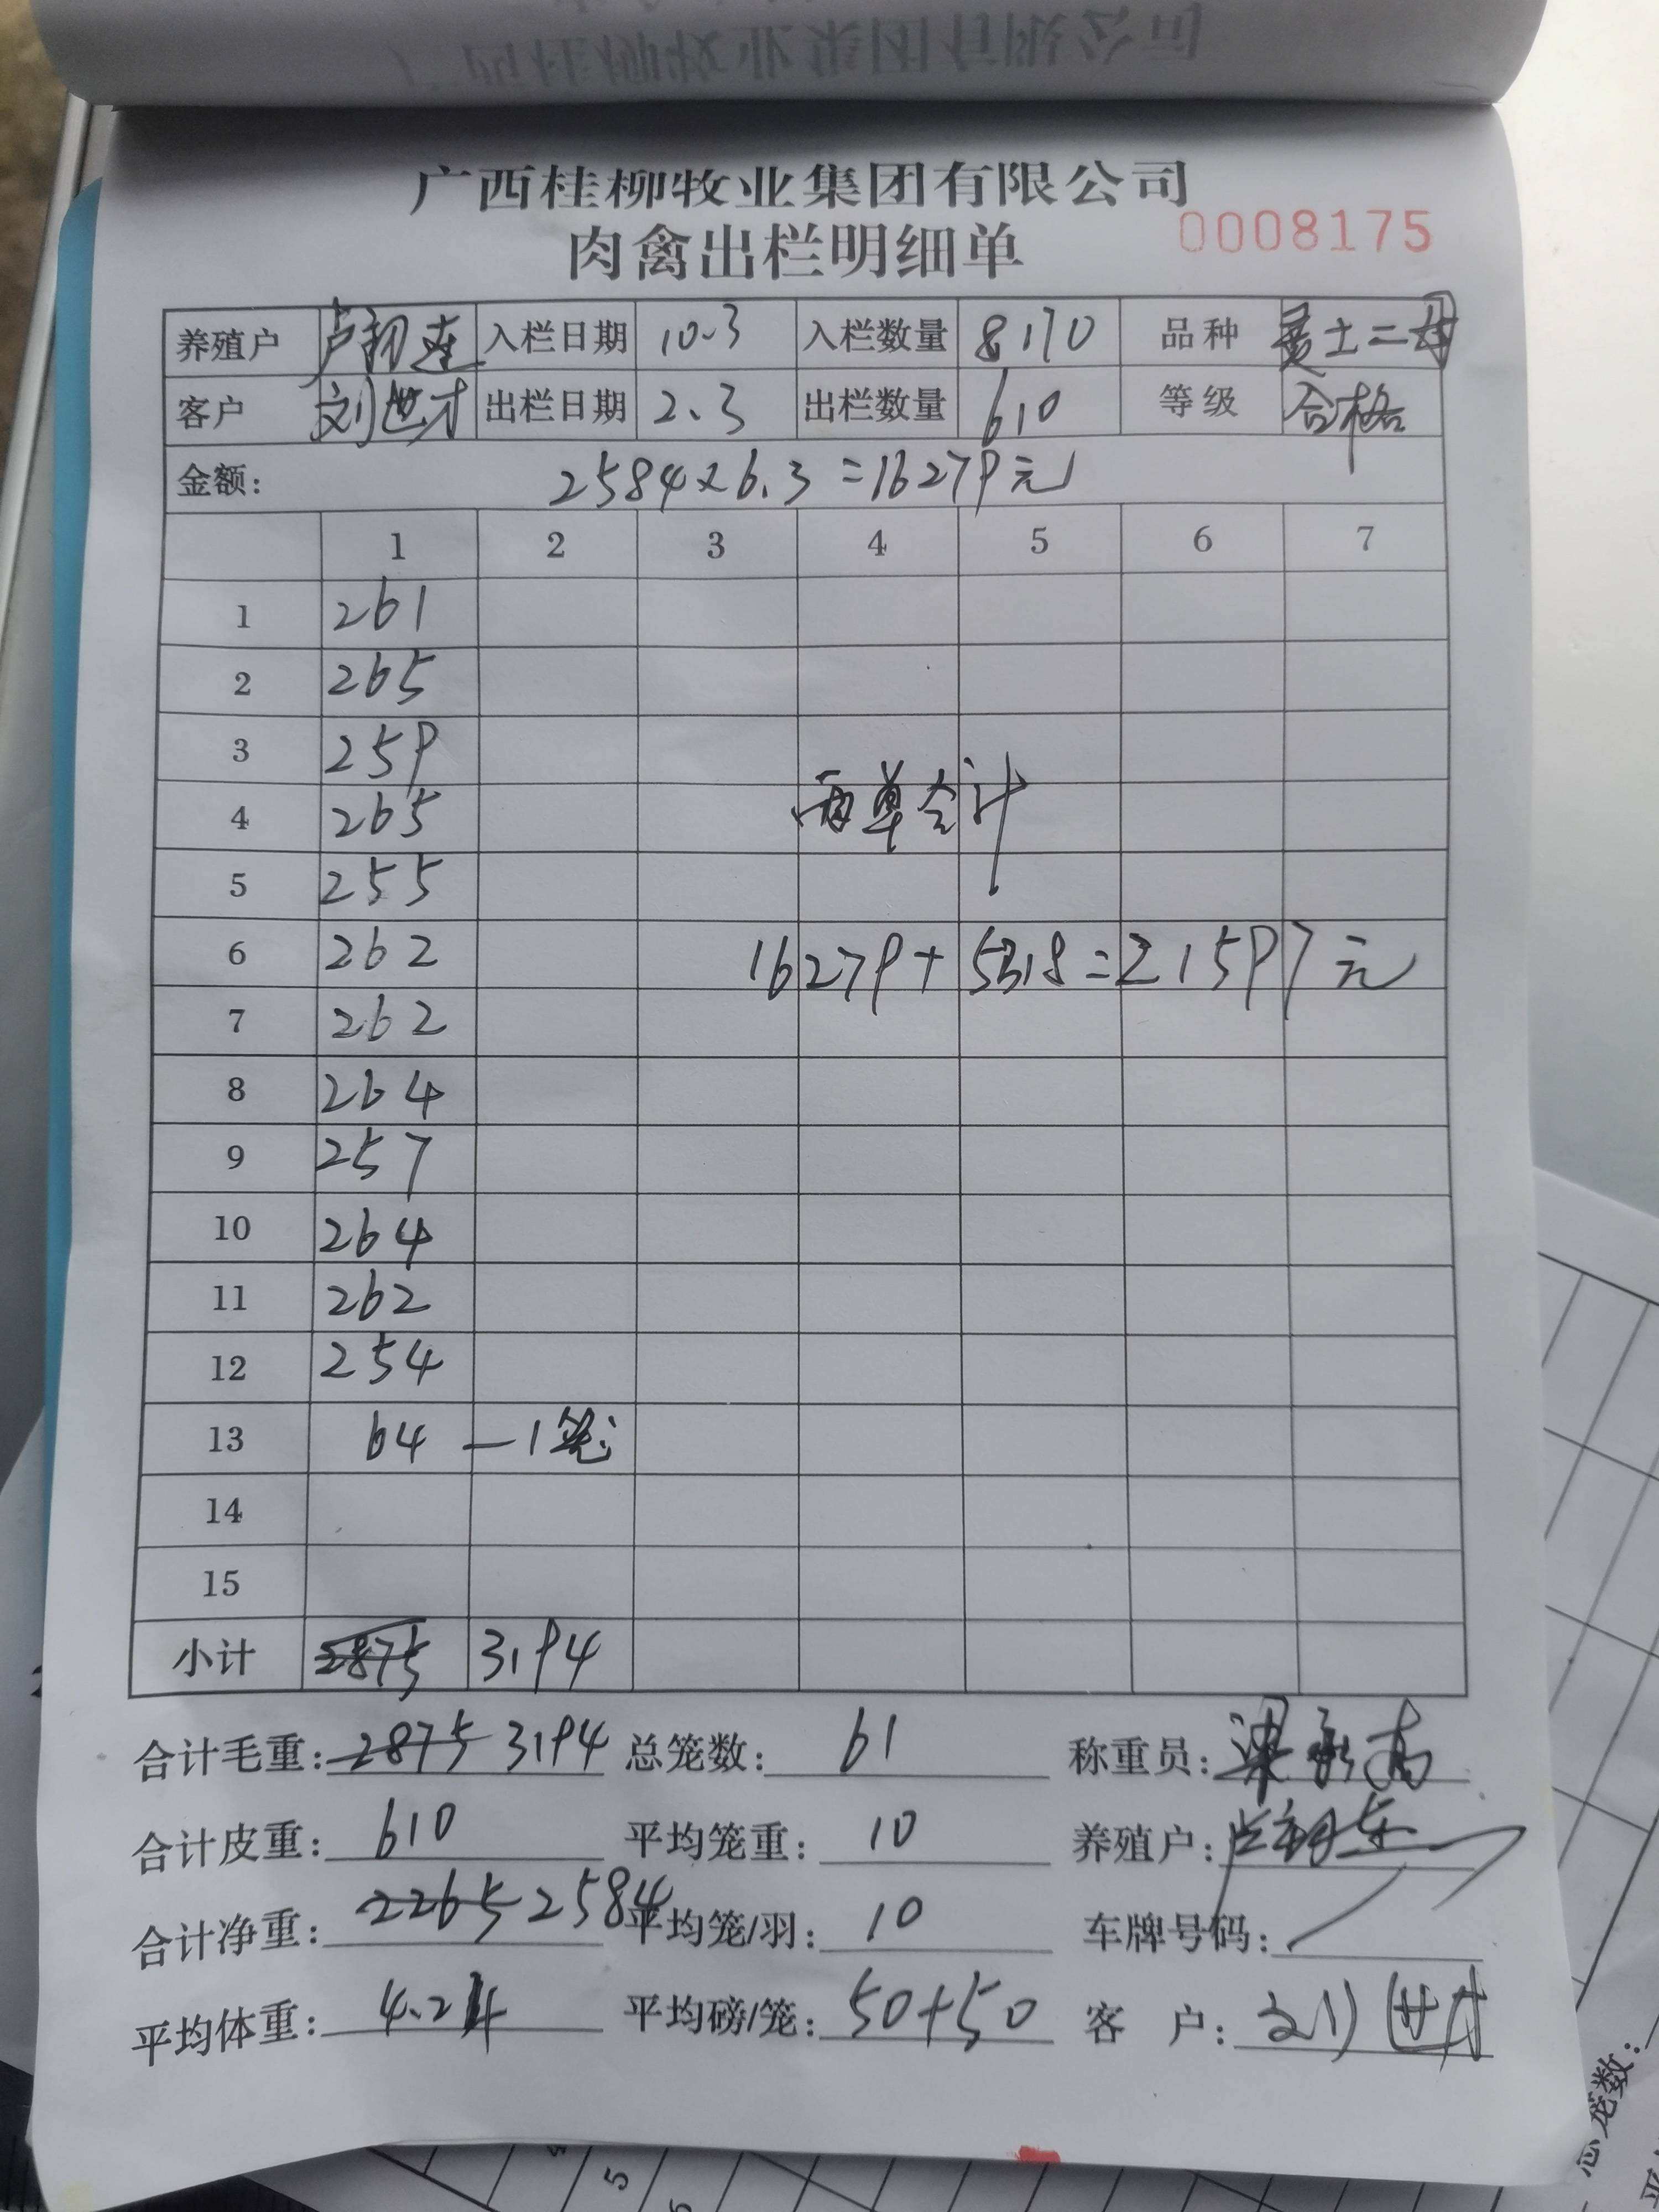 广西桂柳牧业集团有限公司
广西桂柳牧业集团有限公司
肉禽出栏明细单 0008175
养殖户 卢翔 入栏日期 10.3 入栏数量 8170 品种 土二
客户 刘世才 出栏日期 2.3 出栏数量 610 等级 合格
金额: 2584×6.3=16279元
1 2 3 4 5 6 7
1 261
2 265
3 259
4 265
两单合计
5 255
6 262 16279+5318=21597元
7 262
8 264
9 257
10 264
11 262
12 254
13 64 —1笼
14
15
小计 2875 3194
合计毛重: 2875 3194 总笼数: 61 称重员: 梁
合计皮重: 610 平均笼重: 10 养殖户: 卢翔
合计净重: 2265 2584 平均笼/羽: 10 车牌号码:
平均体重: 4.24 平均磅/笼: 50+50 客 户: 刘世才
总笼数:
5
6